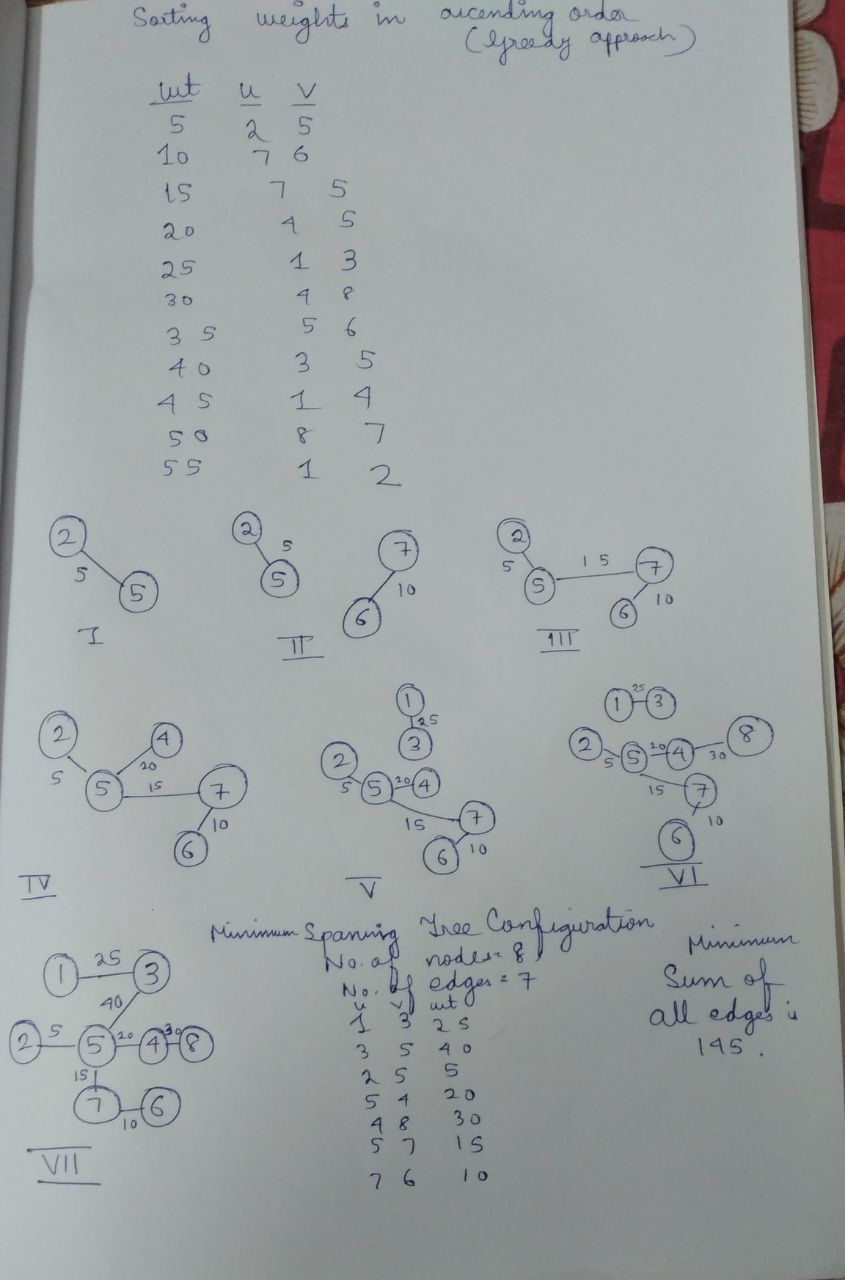 Sorting weights in ascending order
(Greedy approach)
wt u v
5 2 5
10 7 6
15 7 5
20 4 5
25 1 3
30 4 8
35 5 6
40 3 5
45 1 4
50 8 7
55 1 2
2 5 5
I
2 5 5 7 10 6
II
2 5 5 15 7 10 6
III
2 5 5 20 4 15 7 10 6
IV
1 25 3 2 5 5 20 4 15 7 10 6
V
1 25 3 2 5 5 20 4 30 8 15 7 10 6
VI
1 25 3
40
2 5 5 20 4 30 8
15
7 10 6
VII
Minimum Spaning Tree Configuration
No. of nodes = 8
No. of edges = 7
u v wt
1 3 25
3 5 40
2 5 5
5 4 20
4 8 30
5 7 15
7 6 10
Minimum
Sum of
all edges is
145.